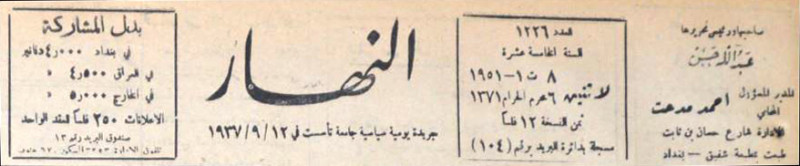 صاحبها ورئيس تحريرها
المدير المسؤول
المحامي
احمد مدحت
الادارة شارع حسان بن ثابت
طبعت بمطبعة شفيق - بغداد
العدد ١٢٢٦
السنة الخامسة عشرة
٨ ت١ - ١٩٥١
لاثنين ٦ محرم الحرام ١٣٧١
ثمن النسخة ١٢ فلسا
مسجلة بدائرة البريد برقم (١٠٤)
النهار
جريدة يومية سياسية جامعة تأسست في ١٢/٩/١٩٣٧
بدل المشاركة
في بغداد ٤٫٠٠٠ دنانير
في العراق ٤٫٥٠٠ »
في الخارج ٥٫٠٠٠ »
الاعلانات ٢٥٠ فلسا للعقد الواحد
صندوق البريد رقم ١٣